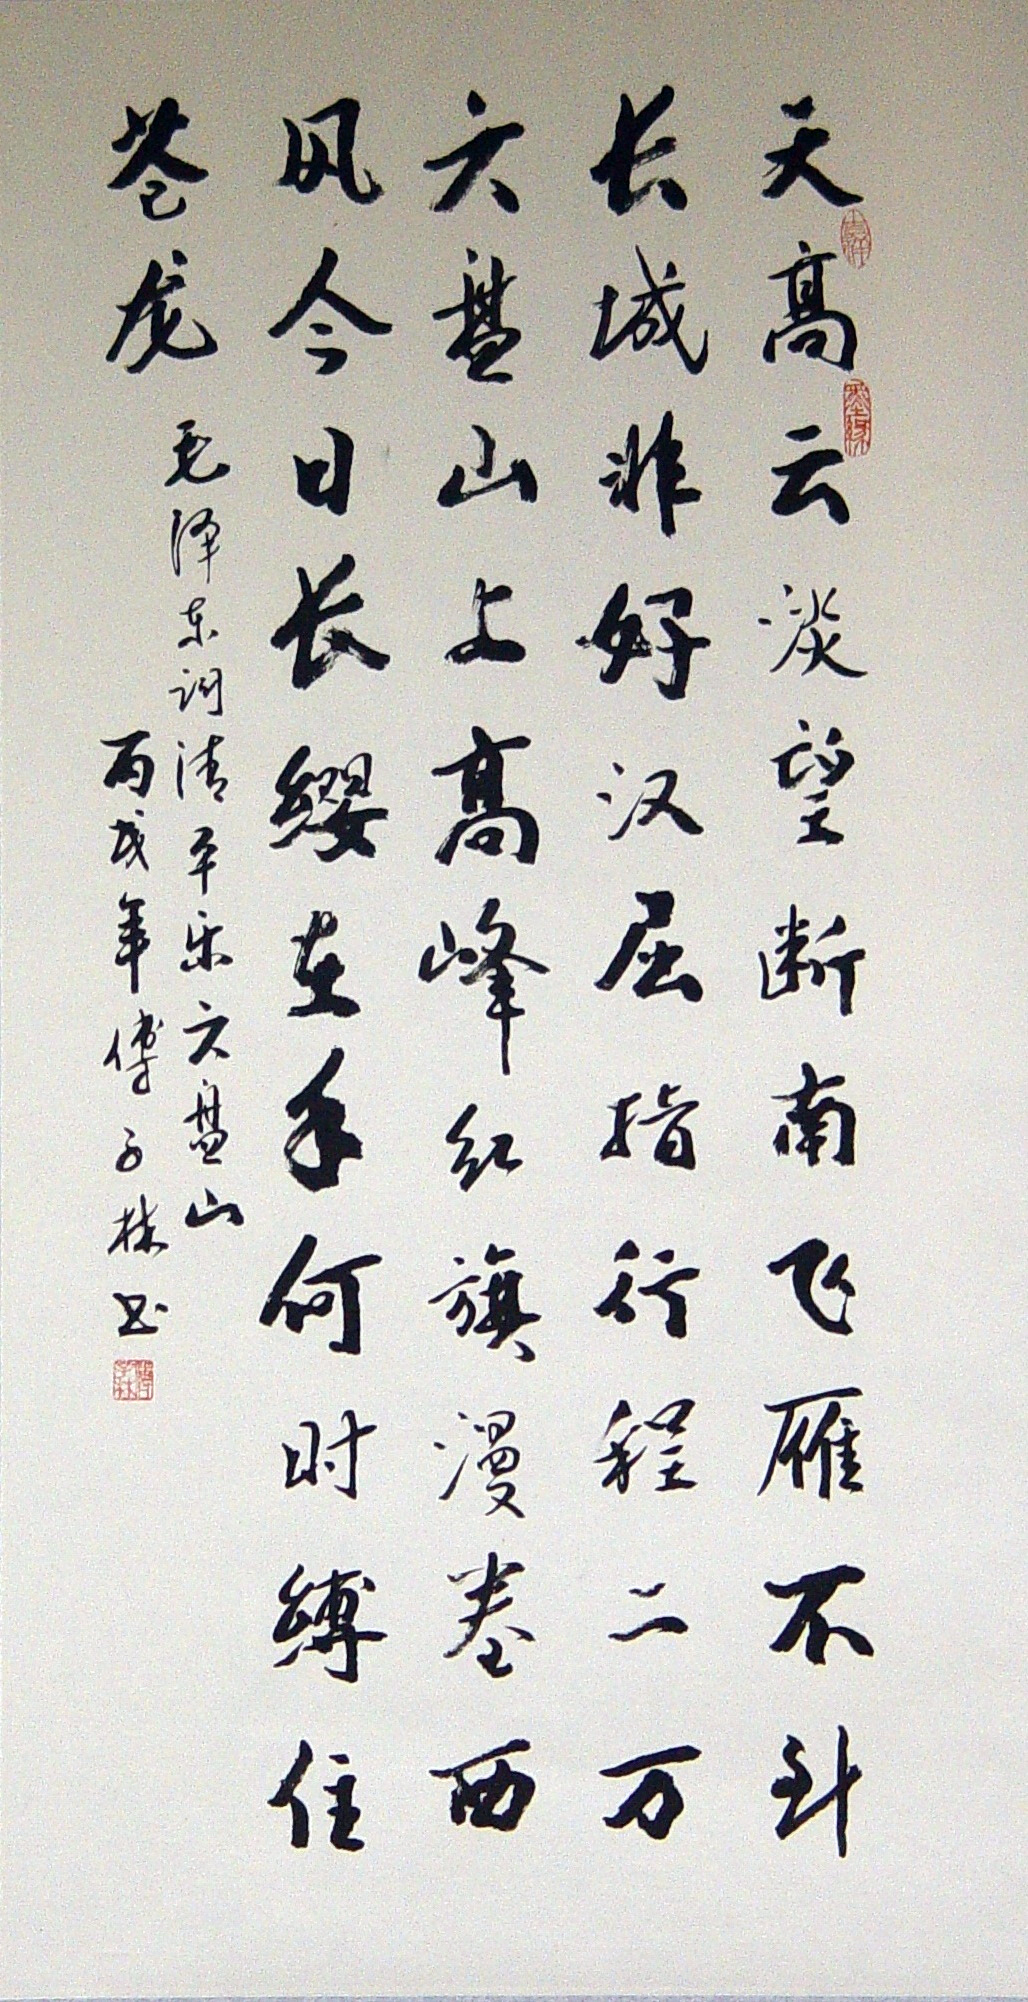 天高云淡望断南飞雁不到
长城非好汉屈指行程二万
六盘山上高峰红旗漫卷西
风今日长缨在手何时缚住
苍龙
毛泽东词清平乐六盘山
丙戌年傅子林书